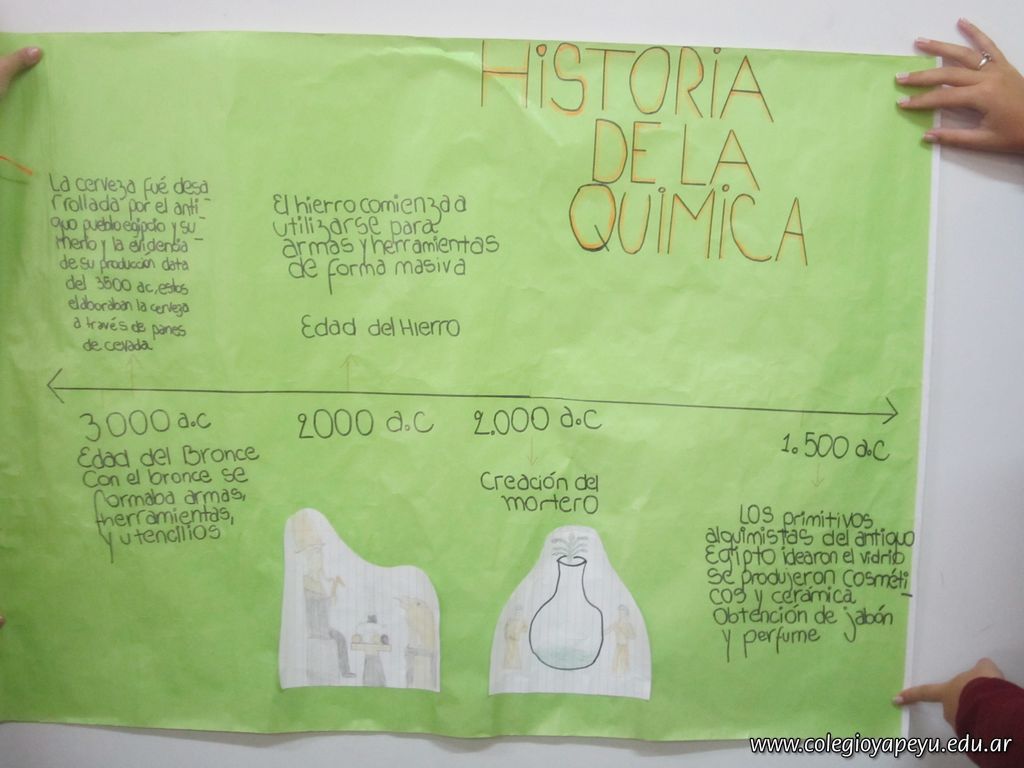 HISTORIA
DE LA
QUIMICA
La cerveza fué desa
rrollada por el anti-
guo pueblo egipcio y su-
merio y la evidencia
de su producción data
del 3500 a.c, estos
elaboraban la cerveza
a través de panes
de cevada.
El hierro comienza a
utilizarse para
armas y herramientas
de forma masiva
Edad del Hierro
3000 a.c
Edad del Bronce
Con el bronce se
formaba armas,
herramientas,
y utencilios
2000 a.c
2.000 a.c
Creación del
mortero
1.500 a.c
LOS primitivos
alquimistas del antiguo
Egipto idearon el vidrio
se produjeron cosméti-
cos y cerámica
Obtención de jabón
y perfume
www.colegioyapeyu.edu.ar